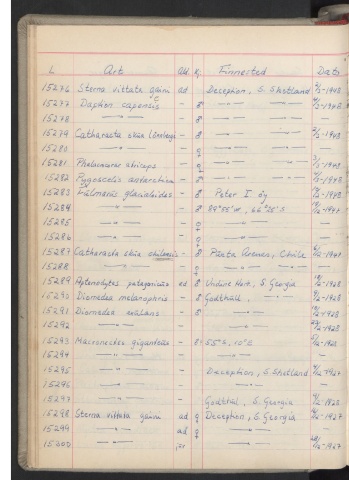 L Art Ad. Kj. Finnested Dato
15276 Sterna vittata gaini ad Deception, S. Shetland -1928
15277 Daption capensis - ♂ —"—
15278 —"— - ♂ —"—
15279 Catharacta skua - —"— -1928
15280 —"— - ♀ —"—
15281 Phalacrocorax atriceps - ♀ —"— -1928
15282 Pygoscelis antarctica - ♂ —"— -1928
15283 Fulmarus glacialoides - ♂ Peter I. øy
15284 —"— - ♂ W, S -1927
15285 —"— - ♀ —"—
15286 —"— - ♀ —"—
15287 Catharacta skua chilensis - ♂ Punta Arenas, Chile -1927
15288 —"— - ♀ —"—
15289 Aptenodytes patagonicus ad ♂ Undine Harb., S. Georgia -1928
15290 Diomedea melanophris - ♂ Godthul, —"— -1928
15291 Diomedea exulans - ♂ —"— -1928
15292 —"— - —"— -1928
15293 Macronectes giganteus - 55° S, 10° E -1928
15294 —"— - —"—
15295 —"— Deception, S. Shetland -1927
15296 —"— - —"—
15297 —"— - Godthul, S. Georgia -1928
15298 Sterna vittata gaini ad ♀ Deception, S. Georgia -1927
15299 —"— ad ♀ —"—
15300 —"— —"— -1927